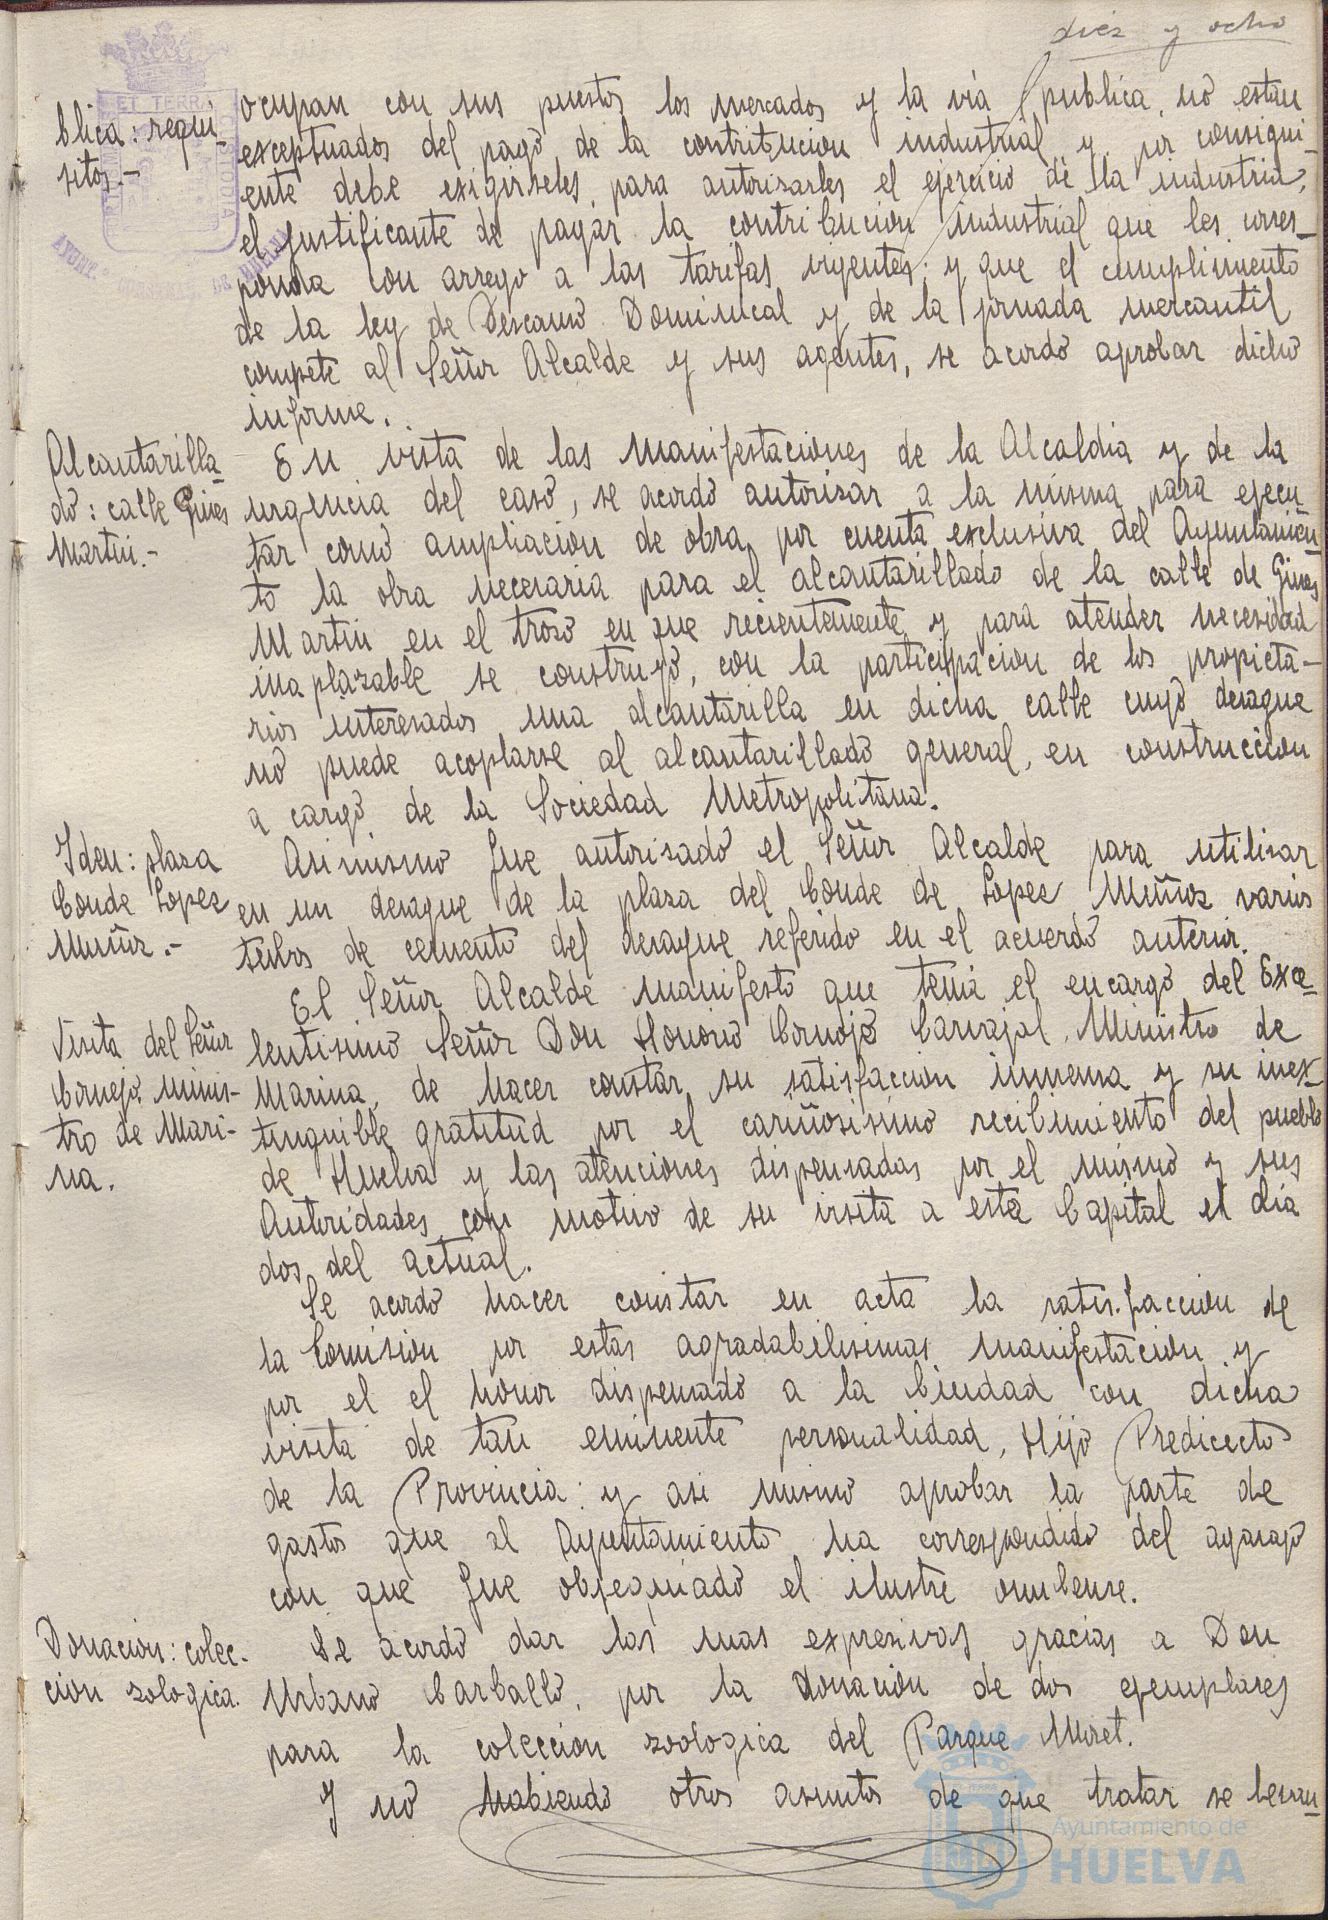 diez y ocho
blica: requi-
sitos.-
ocupan con sus puestos los mercados y la via publica, no estan
exceptuados del pago de la contribucion industrial y por consigui-
ente debe exigirseles, para autorizarles el ejercicio de la industria,
el justificante de pagar la contribucion industrial que les corres-
ponda con arrego a las tarifas vigentes; y que el cumplimento
de la ley de Descanso Dominical y de la jornada mercantil
compete al Señor Alcalde y sus agentes, se acordó aprobar dicho
informe.
Alcantarilla-
do: calle Gines
Martin.-
En vista de las manifestaciones de la Alcaldia y de la
urgencia del caso, se acordó autorizar a la misma para ejecu-
tar como ampliacion de obra, por cuenta exclusiva del Ayuntamien-
to la obra necesaria para el alcantarillado de la calle de Gines
Martin en el trozo en que recientemente y para atender necesidad
inaplazable se construyó, con la participacion de los propieta-
rios interesados una alcantarilla en dicha calle cuyo desague
no puede acoplarse al alcantarillado general, en construccion
a cargo de la Sociedad Metropolitana.
Iden: plaza
Conde Lopez
Muñoz.-
Asimismo fue autorizado el Señor Alcalde para utilizar
en un desague de la plaza del Conde de Lopez Muñoz varios
tubos de cemento del desague referido en el acuerdo anterior.
Visita del Señor
Cornejo, Minis-
tro de Mari-
na.
El Señor Alcalde manifestó que tenia el encargo del Exce-
lentisimo Señor Don Honorio Cornejo Carvajal, Ministro de
Marina, de hacer constar su satisfaccion inmensa y su inex-
tinguible gratitud por el cariñosisimo recibimiento del pueblo
de Huelva y las atenciones dispensadas por el mismo y sus
Autoridades, con motivo de su visita a esta Capital el dia
dos del actual.
Se acordó hacer constar en acta la satisfaccion de
la Comision por estas agradabilisimas manifestacion y
por el el honor dispensado a la Ciudad con dicha
visita de tan eminente personalidad, Hijo Predilecto
de la Provincia: y asi mismo aprobar la parte de
gastos que al Ayuntamiento ha correspondido del agasajo
con que fue obsequiado el ilustre onubense.
Donacion: colec-
cion zologica.
Se acordó dar las mas expresivas gracias a Don
Urbano Carballo, por la donacion de dos ejemplares
para la coleccion zoologica del Parque Moret.
Y no habiendo otros asuntos de que tratar se levan-
Ayuntamiento de
HUELVA